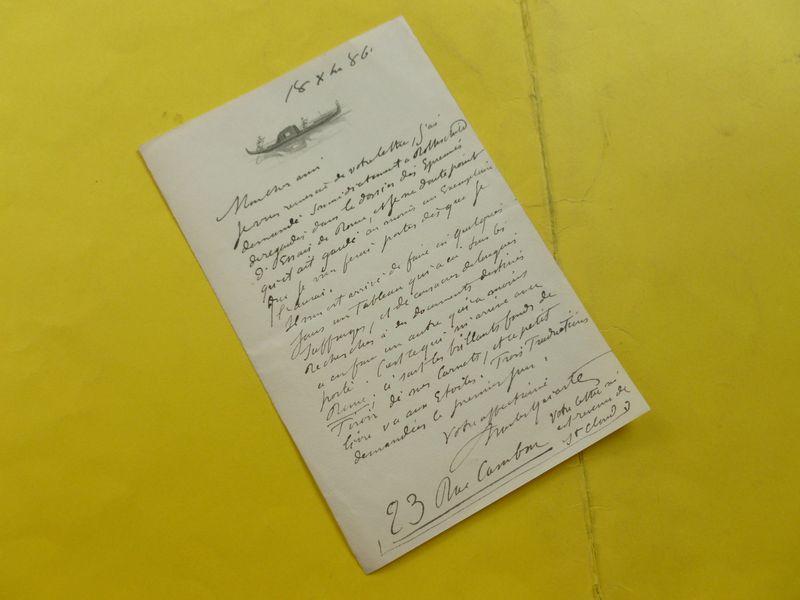 18 Xbre 86.
Mon cher ami
Je vous remercie de votre lettre, J'ai
demandé immédiatement à Rothschild
de regarder dans le dossier des Epreuves
d'Essais de Rome, et je ne doute point
qu'il ait gardé au moins un Exemplaire
que je vous ferai porter dès que je
l'aurai.
Il m'est arrivé de faire en quelques
jours un tableau qui a eu tous les
suffrages, et de consacrer de longues
recherches à des documents destinés
à en faire un autre qui a moins
porté. C'est ce qui m'arrive avec
Rome; ce sont les brillants fonds de
Tiroir de mes Carnets, et ce petit
livre va aux Etoiles. Trois Traductions
demandées le premier jour.
Votre affectionné
Charles Yriarte
23 Rue Cambon
Votre lettre m'
est revenue de
St Cloud